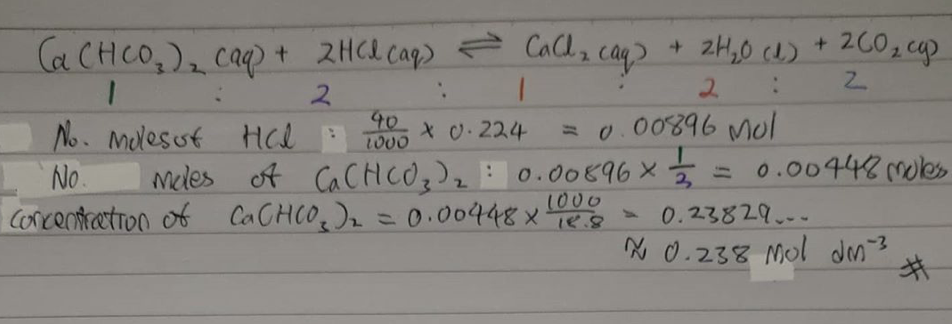 Ca(HCO₃)₂ (aq) + 2HCl (aq) ⇌ CaCl₂ (aq) + 2H₂O (l) + 2CO₂ (g)
1 : 2 : 1 : 2 : 2
No. moles of HCl : 40/1000 × 0.224 = 0.00896 Mol
No. moles of Ca(HCO₃)₂ : 0.00896 × 1/2 = 0.00448 moles
Concentration of Ca(HCO₃)₂ = 0.00448 × 1000/18.8 = 0.23829...
≈ 0.238 Mol dm⁻³ #